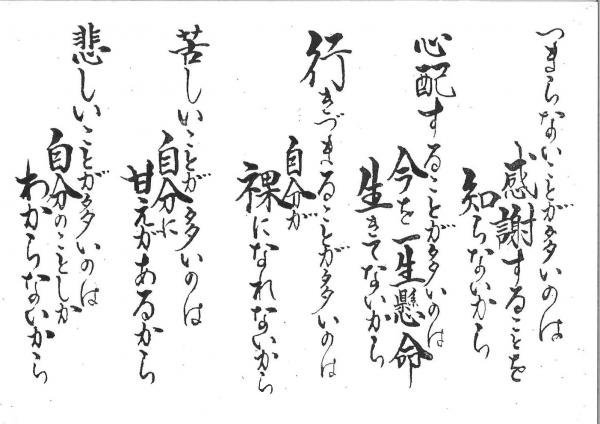 つまらないことが多いのは
感謝することを
知らないから
心配することが多いのは
今を一生懸命
生きてないから
行きづまることが多いのは
自分が
裸になれないから
苦しいことが多いのは
自分に
甘えがあるから
悲しいことが多いのは
自分のことしか
わからないから